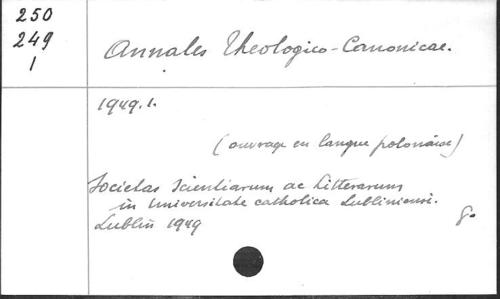 250
249
1
Annales Theologico-Canonicae.
1949.1.
(ouvrage en langue polonaise)
Societas Scientiarum ac Litterarum
in Universitate catholica Lubliniensi.
Lublin 1949
g.